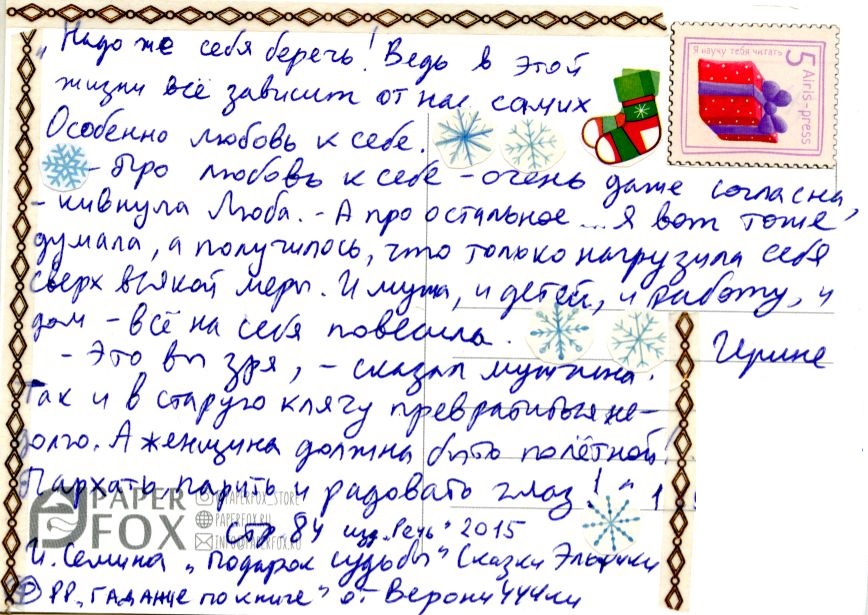 „Надо же себя беречь! Ведь в этой
жизни всё зависит от нас самих
Особенно любовь к себе.
- Про любовь к себе - очень даже согласна,
- кивнула Люба. - А про остальное... Я вот тоже
думала, а получилось, что только нагрузила себя
сверх всякой меры. И мужа, и детей, и работу, и
дом - всё на себя повесила.
- Это вы зря, - сказал мужчина.
Так и в старую клячу превратиться не-
долго. А женщина должна быть полётной!
Пархать, парить и радовать глаз!"
стр 84 изд „Речь" 2015
И. Семина „Подарок судьбы" Сказки Эльфики
РР „Гадание по книге" от Верони444ки
Ирине
Я научу тебя читать
5
Airis-press
PAPER
FOX
@PAPERFOX_STORE
PAPERFOX.RU
INFO@PAPERFOX.RU